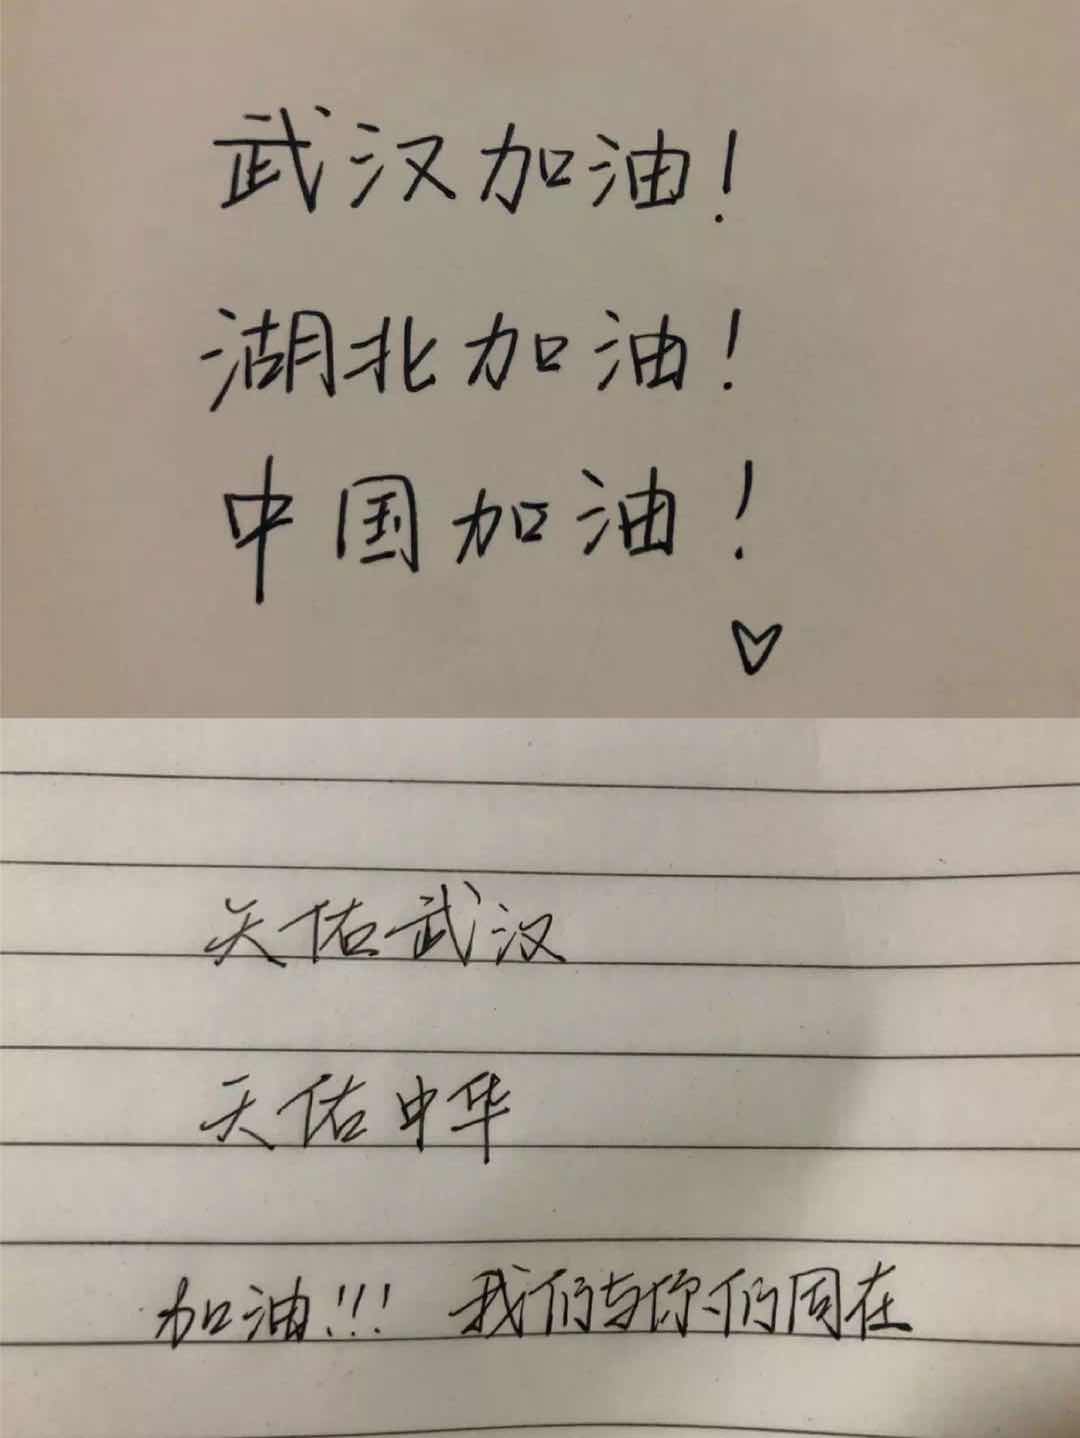 武汉加油!
湖北加油!
中国加油!
天佑武汉
天佑中华
加油!!! 我们与你们同在